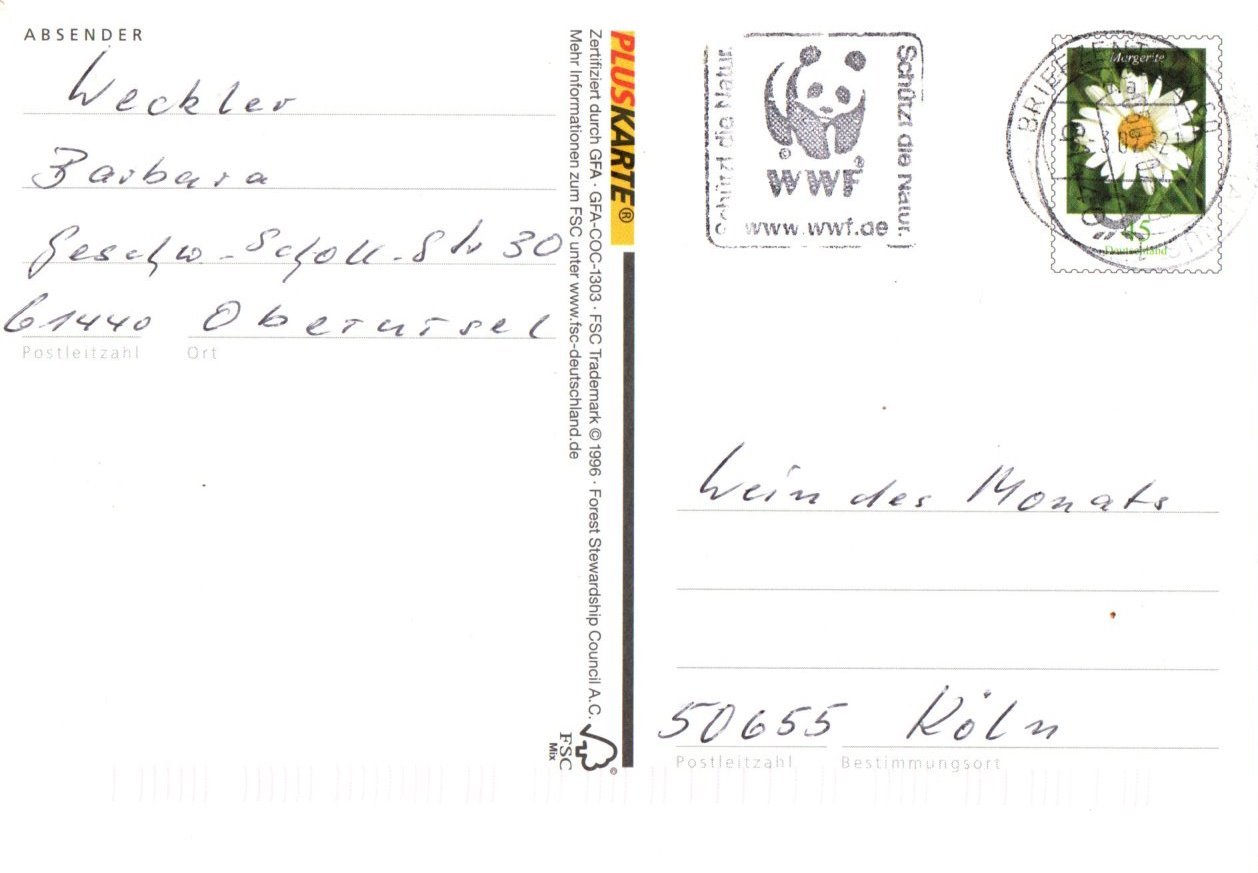 ABSENDER
Weckler
Barbara
Geschw.-Scholl-Str 30
61440 Oberursel
Postleitzahl Ort
PLUSKARTE®
Zertifiziert durch GFA · GFA-COC-1303 · FSC Trademark © 1996 · Forest Stewardship Council A.C.
Mehr Informationen zum FSC unter www.fsc-deutschland.de
FSC
Mix
©
Schützt die Natur.
WWF®
www.wwf.de
Margerite
45
Deutschland
BRIEFZENTRUM
Wein des Monats
50655 Köln
Postleitzahl Bestimmungsort